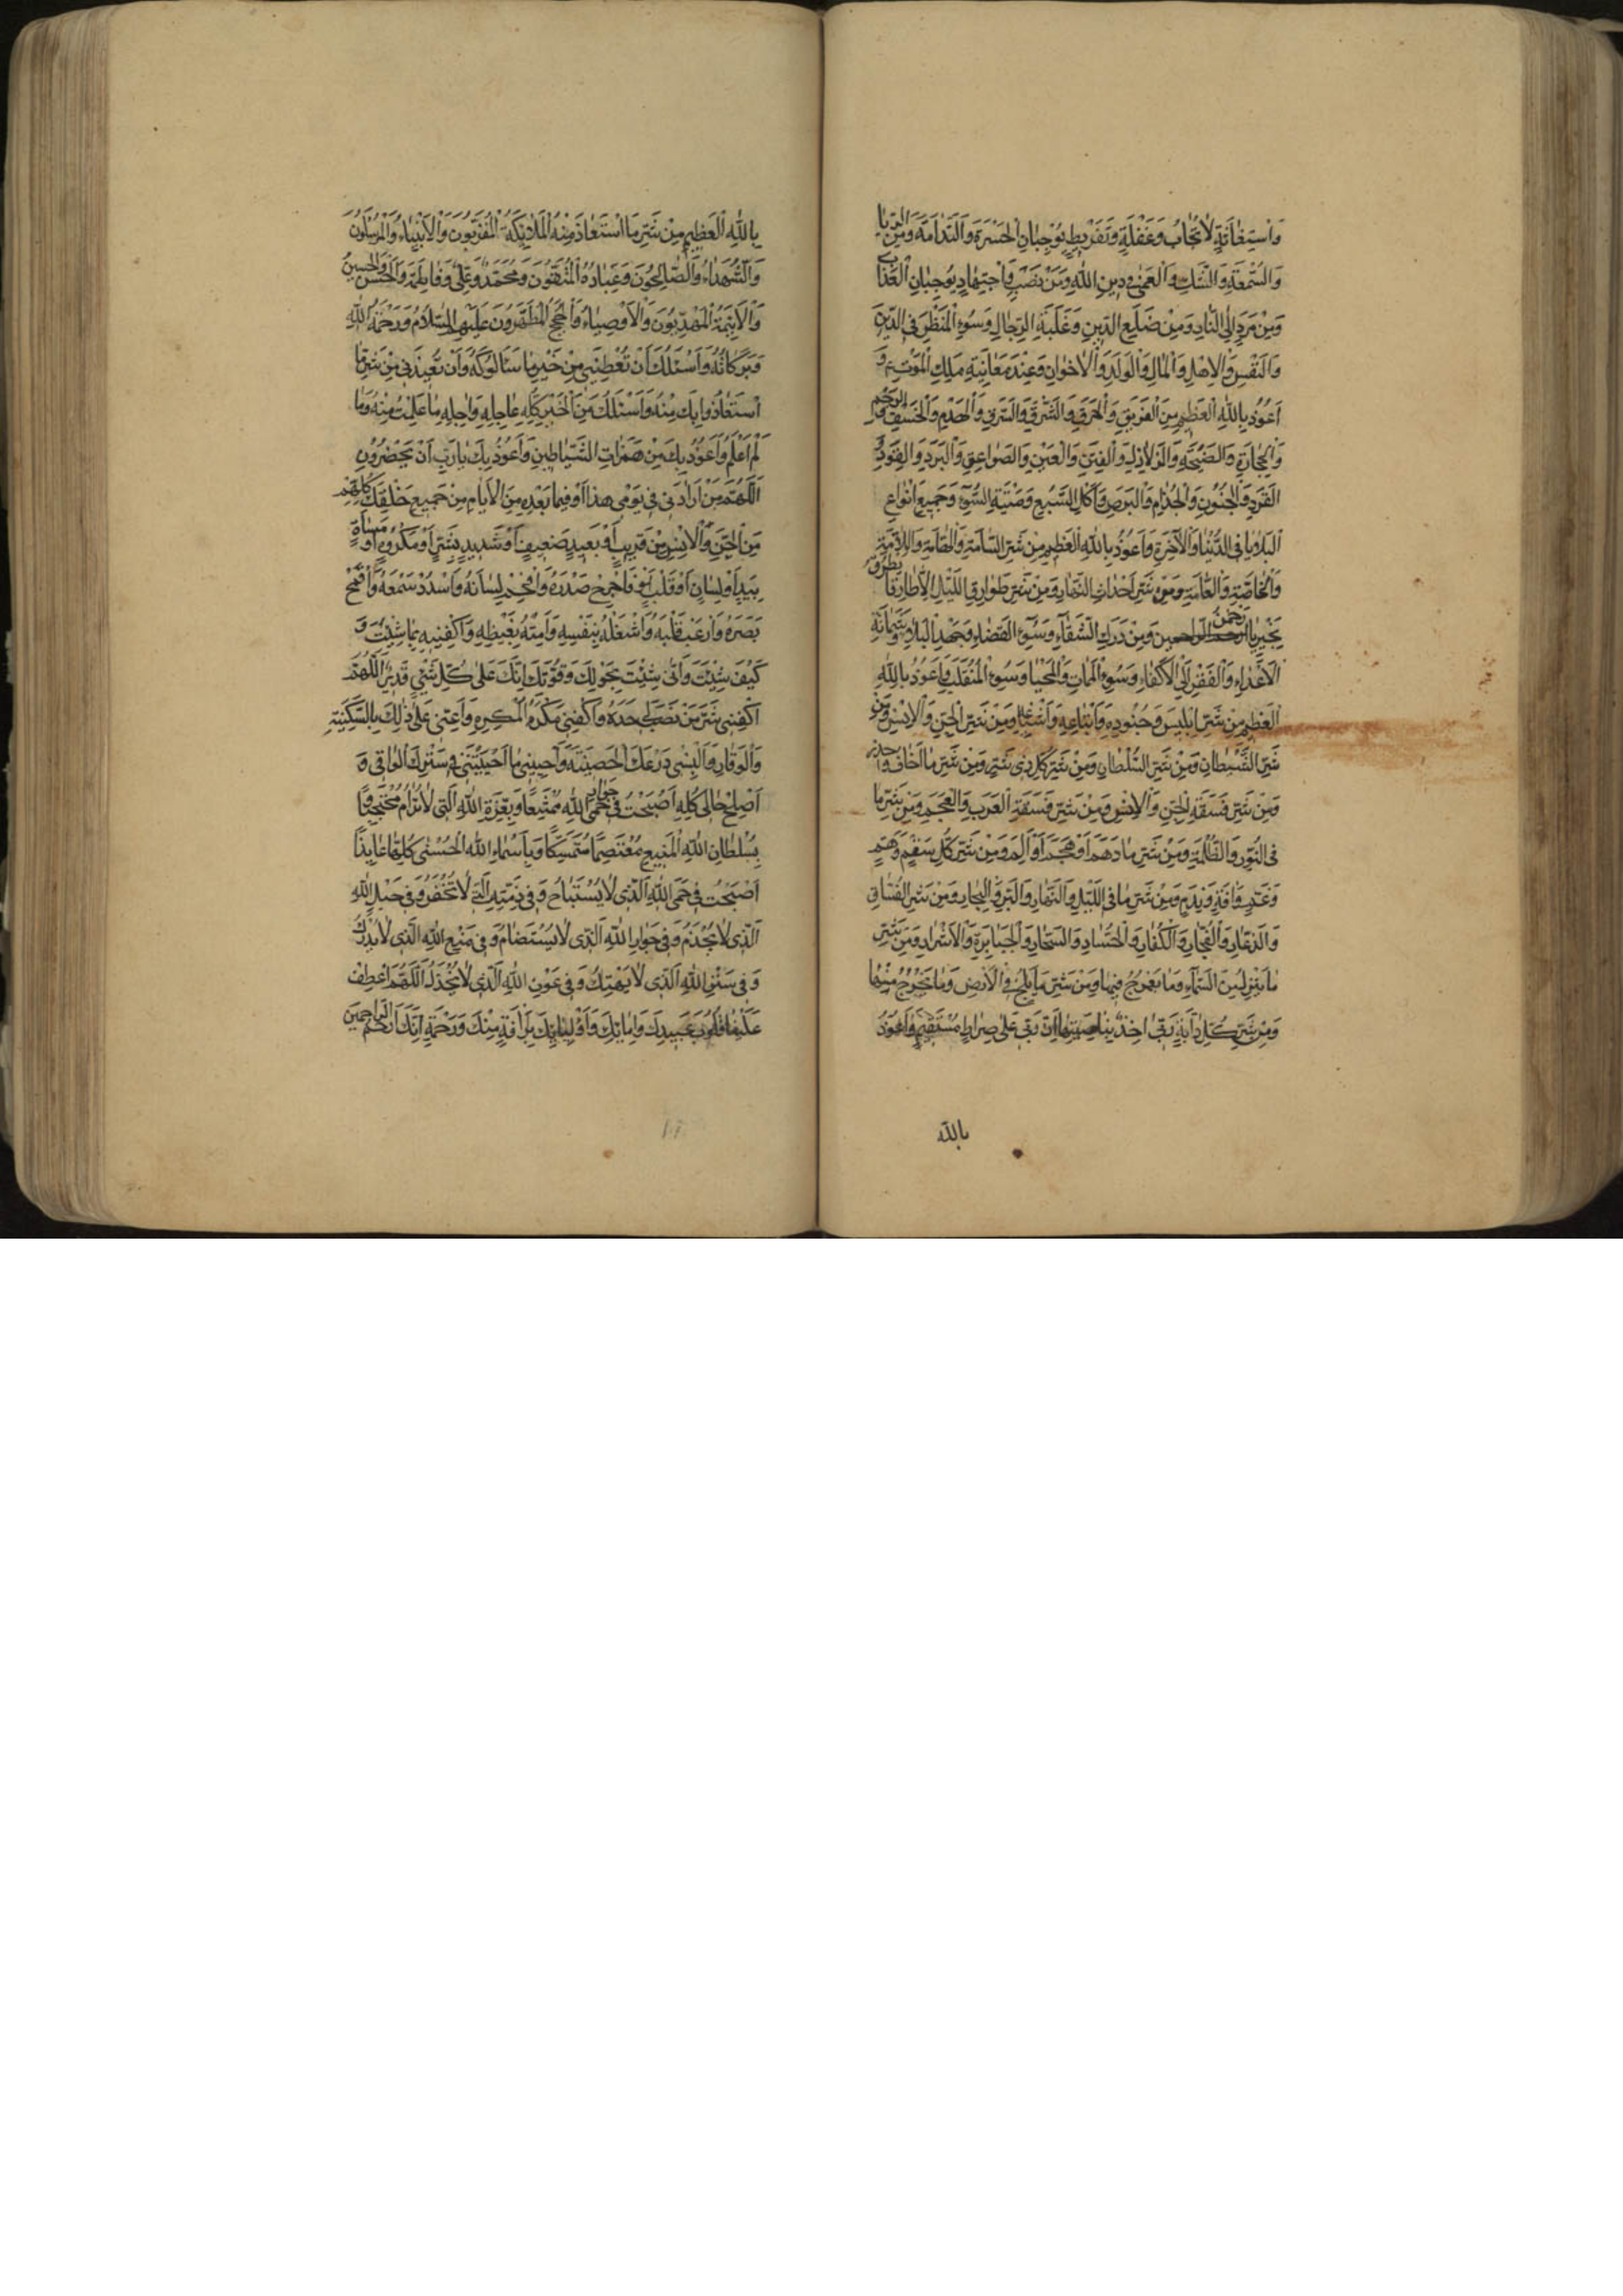 وَاسْتِغاثَةٍ لاٰتُجابُ وَغَفْلَةٍ وَتَفْرِيطٍ يُوجِبانِ الْحَسْرَةَ وَالنَّدامَةَ وَمِنَ الرِّيا
وَالسُّمْعَةِ وَالشَّكِّ وَالْعَمىٰ في دينِ اللّٰهِ وَمِنْ نَصَبٍ وَاجْتِهادٍ يُوجِبانِ الْعَذابَ
وَمِنْ مَرَدٍّ اِلَى النّارِ وَمِنْ ضَلَعِ الدَّيْنِ وَغَلَبَةِ الرِّجالِ وَسُوءِ الْمَنْظَرِ فِى الدّينِ
وَالنَّفْسِ وَالْاَهْلِ وَالْمالِ وَالْوَلَدِ وَالْاِخْوانِ وَعِنْدَ مُعايَنَةِ مَلَكِ الْمَوْتِ وَ
اَعُوذُ بِاللّٰهِ الْعَظيمِ مِنَ الْغَرَقِ وَالْحَرَقِ وَالشَّرَقِ وَالسَّرَقِ وَالْهَدْمِ وَالْخَسْفِ وَالرَّجْمِ
وَالْحِجارَةِ وَالصَّيْحَةِ وَالزَّلازِلِ وَالْفِتَنِ وَالْعَيْنِ وَالصَّواعِقِ وَالْبَرَدِ وَالْقَوَدِ وَ
الْقَرَدِ وَالْجُنُونِ وَالْجُذامِ وَالْبَرَصِ وَاَكْلِ السَّبُعِ وَمَيْتَةِ السُّوءِ وَجَميعِ اَنْواعِ
الْبَلايا فِى الدُّنْيا وَالْآخِرَةِ وَاَعُوذُ بِاللّٰهِ الْعَظيمِ مِنْ شَرِّ السّامَّةِ وَالْهامَّةِ وَاللّامَّةِ
وَالْخاصَّةِ وَالْعامَّةِ وَمِنْ شَرِّ اَحْداثِ النَّهارِ وَمِنْ شَرِّ طَوارِقِ اللَّيْلِ اِلّا طارِقًا يَطْرُقُ
بِخَيْرٍ يا رَحْمٰنُ وَمِنْ دَرَكِ الشَّقاءِ وَسُوءِ الْقَضاءِ وَجَهْدِ الْبَلاءِ وَشَماتَةِ
الْاَعْداءِ وَالْفَقْرِ اِلَى الْاَكْفاءِ وَسُوءِ الْمَماتِ وَالْمَحْيا وَسُوءِ الْمُنْقَلَبِ وَاَعُوذُ بِاللّٰهِ
الْعَظيمِ مِنْ شَرِّ اِبْليسَ وَجُنُودِهِ وَاَتْباعِهِ وَاَشْياعِهِ وَمِنْ شَرِّ الْجِنِّ وَالْاِنْسِ وَمِنْ
شَرِّ الشَّيْطانِ وَمِنْ شَرِّ السُّلْطانِ وَمِنْ شَرِّ كُلِّ ذى شَرٍّ وَمِنْ شَرِّ ما اَخافُ وَاَحْذَرُ
وَمِنْ شَرِّ فَسَقَةِ الْجِنِّ وَالْاِنْسِ وَمِنْ شَرِّ فَسَقَةِ الْعَرَبِ وَالْعَجَمِ وَمِنْ شَرِّ ما
فِى النُّورِ وَالظُّلْمَةِ وَمِنْ شَرِّ ما دَهَمَ اَوْ هَجَمَ اَوْ اَلَمَّ وَمِنْ شَرِّ كُلِّ سَقَمٍ وَهَمٍّ
وَغَمٍّ وَآفَةٍ وَنَدَمٍ وَمِنْ شَرِّ ما فِى اللَّيْلِ وَالنَّهارِ وَالْبَرِّ وَالْبِحارِ وَمِنْ شَرِّ الْفُسّاقِ
وَالذُّعّارِ وَالْفُجّارِ وَالْكُفّارِ وَالْحُسّادِ وَالسُّحّارِ وَالْجَبابِرَةِ وَالْاَشْرارِ وَمِنْ شَرِّ
ما يَنْزِلُ مِنَ السَّماءِ وَما يَعْرُجُ فيها وَمِنْ شَرِّ ما يَلِجُ فِى الْاَرْضِ وَما يَخْرُجُ مِنْها
وَمِنْ شَرِّ كُلِّ دابَّةٍ رَبّى اٰخِذٌ بِناصِيَتِها اِنَّ رَبّى عَلىٰ صِراطٍ مُسْتَقيمٍ وَاَعُوذُ
بالله
بِاللّٰهِ الْعَظيمِ مِنْ شَرِّ مَا اسْتَعاذَ مِنْهُ الْمَلائِكَةُ الْمُقَرَّبُونَ وَالْاَنْبِياءُ وَالْمُرْسَلُونَ
وَالشُّهَداءُ وَالصّالِحُونَ وَعِبادُهُ الْمُتَّقُونَ وَمُحَمَّدٌ وَعَلِىٌّ وَفاطِمَةُ وَالْحَسَنُ وَالْحُسَيْنُ
وَالْاَئِمَّةُ الْمَهْدِيُّونَ وَالْاَوْصِياءُ وَالْحُجَجُ الْمُطَهَّرُونَ عَلَيْهِمُ السَّلامُ وَرَحْمَةُ اللّٰهِ
وَبَرَكاتُهُ وَاَسْئَلُكَ اَنْ تُعْطِيَنى مِنْ خَيْرِ ما سَاَلُوكَهُ وَاَنْ تُعيذَنى مِنْ شَرِّ مَا
اسْتَعاذُوا بِكَ مِنْهُ وَاَسْئَلُكَ مِنَ الْخَيْرِ كُلِّهِ عاجِلِهِ وَآجِلِهِ ما عَلِمْتُ مِنْهُ وَما
لَمْ اَعْلَمْ وَاَعُوذُ بِكَ مِنْ هَمَزاتِ الشَّياطينِ وَاَعُوذُ بِكَ يا رَبِّ اَنْ يَحْضُرُونِ
اَللّٰهُمَّ مَنْ اَرادَنى فى يَوْمى هٰذا اَوْ فيما بَعْدِهِ مِنَ الْاَيّامِ مِنْ جَميعِ خَلْقِكَ كُلِّهِمْ
مِنَ الْجِنِّ وَالْاِنْسِ مِنْ قَريبٍ اَوْ بَعيدٍ ضَعيفٍ اَوْ شَديدٍ بِشَرٍّ اَوْ مَكْرُوهٍ اَوْ مَساءَةٍ
بِيَدٍ اَوْ لِسانٍ اَوْ قَلْبٍ فَاَحْرِجْ صَدْرَهُ وَاَفْحِمْ لِسانَهُ وَاسْدُدْ سَمْعَهُ وَاَقْمِحْ
بَصَرَهُ وَارْعَبْ قَلْبَهُ وَاشْغَلْهُ بِنَفْسِهِ وَاَمِتْهُ بِغَيْظِهِ وَاكْفِنيهِ بِما شِئْتَ وَ
كَيْفَ شِئْتَ وَاَنّىٰ شِئْتَ بِحَوْلِكَ وَقُوَّتِكَ اِنَّكَ عَلىٰ كُلِّ شَىْءٍ قَديرٌ اَللّٰهُمَّ
اكْفِنى شَرَّ مَنْ نَصَبَ لى حَدَّهُ وَاكْفِنى مَكْرَ الْمَكَرَةِ وَاَعِنّى عَلىٰ ذٰلِكَ بِالسَّكينَةِ
وَالْوَقارِ وَاَلْبِسْنى دِرْعَكَ الْحَصينَةَ وَاَحْيِنى ما اَحْيَيْتَنى فى سَتْرِكَ الْواقى وَ
اَصْلِحْ حالى كُلَّهُ اَصْبَحْتُ فى جِوارِ اللّٰهِ مُمْتَنِعًا وَبِعِزَّةِ اللّٰهِ الَّتى لا تُرامُ مُحْتَجِبًا وَ
بِسُلْطانِ اللّٰهِ الْمَنيعِ مُعْتَصِمًا مُتَمَسِّكًا وَبِاَسْماءِ اللّٰهِ الْحُسْنىٰ كُلِّها عائِذًا
اَصْبَحْتُ فى حِمَى اللّٰهِ الَّذى لا يُسْتَباحُ وَفى ذِمَّتِهِ الَّتى لا تُخْفَرُ وَفى حَبْلِ اللّٰهِ
الَّذى لا يُجْذَمُ وَفى جِوارِ اللّٰهِ الَّذى لا يُسْتَضامُ وَفى مَنْعِ اللّٰهِ الَّذى لا يُدْرَكُ
وَفى سَتْرِ اللّٰهِ الَّذى لا يُهْتَكُ وَفى عَوْنِ اللّٰهِ الَّذى لا يُخْذَلُ اَللّٰهُمَّ اعْطِفْ
عَلَيْنا قُلُوبَ عَبيدِكَ وَاِمائِكَ وَاَوْلِيائِكَ بِرَأْفَةٍ مِنْكَ وَرَحْمَةٍ اِنَّكَ اَرْحَمُ الرّاحِمينَ